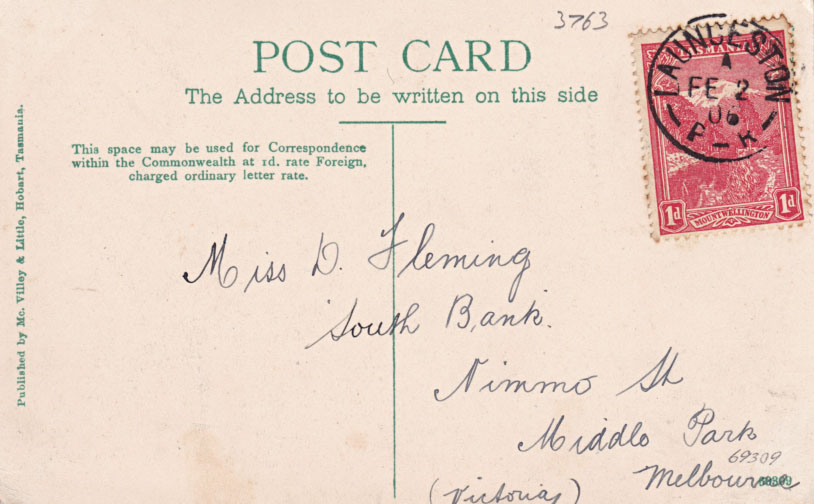 3763
POST CARD
The Address to be written on this side
This space may be used for Correspondence
within the Commonwealth at 1d. rate Foreign,
charged ordinary letter rate.
Published by Mc. Villey & Little, Hobart, Tasmania.
TASMANIA
LAUNCESTON
A
FE 2
06
1d
MOUNT WELLINGTON
1d
Miss D. Fleming
South Bank.
Nimmo St
Middle Park
69309
Melbourne
(Victoria)